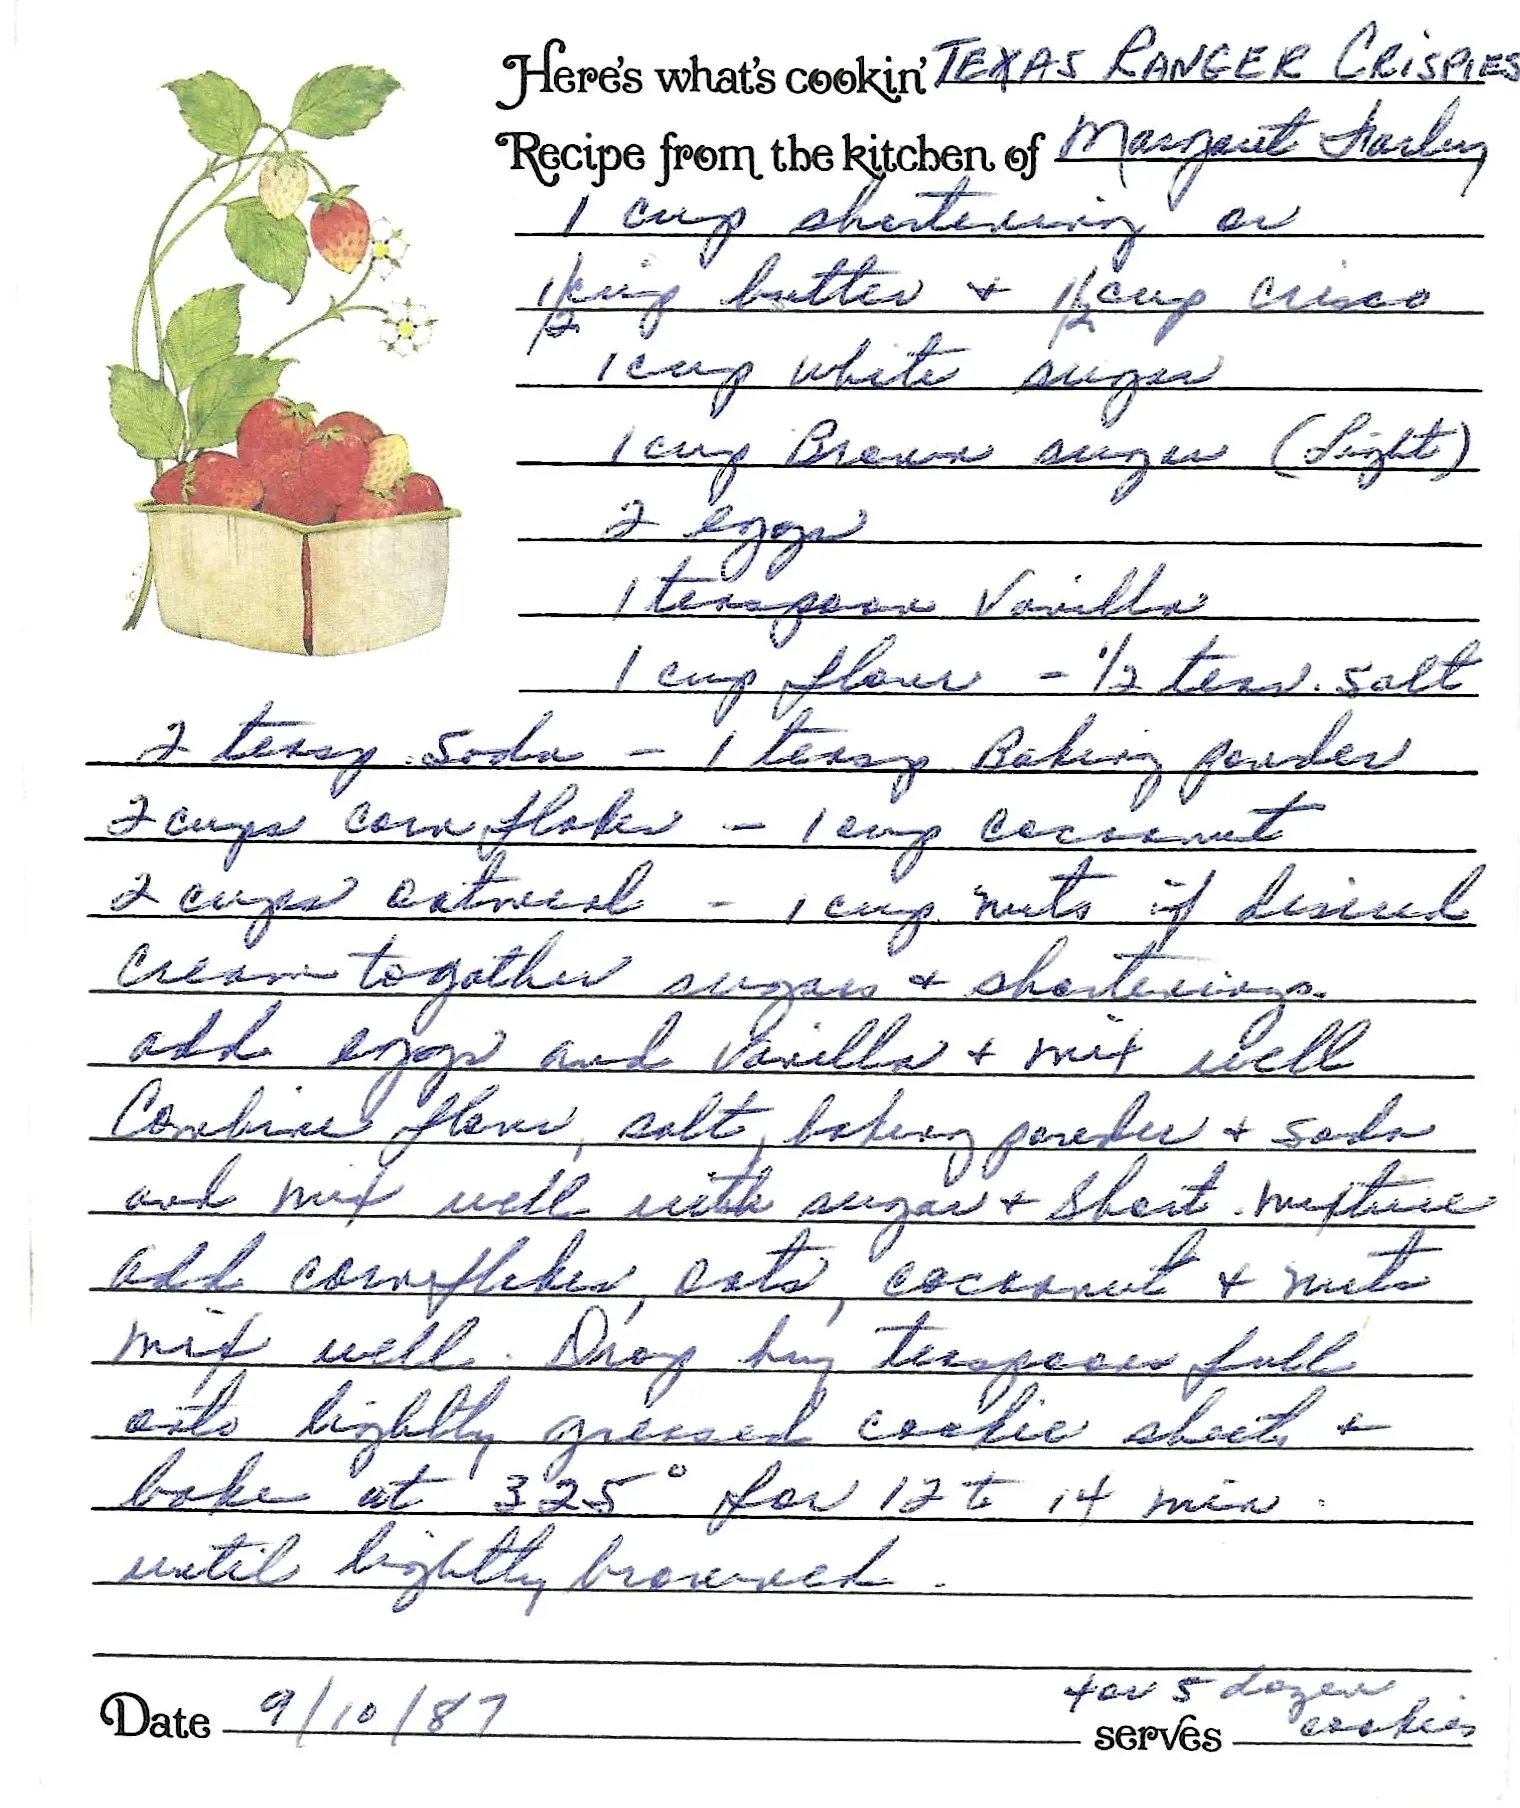 Here's what's cookin' TEXAS RANGER CRISPIES
Recipe from the kitchen of Margaret Farley
1 cup shortening or
1/2 cup butter + 1/2 cup crisco
1 cup white sugar
1 cup Brown sugar (Light)
2 eggs
1 teaspoon Vanilla
1 cup flour - 1/2 teas. salt
2 teasp. soda - 1 teasp Baking powder
2 cups corn flakes - 1 cup cocoanut
2 cups oatmeal - 1 cup nuts if desired
Cream together sugars + shortenings.
add eggs and Vanilla + mix well
Combine flour, salt, baking powder + soda
and mix well with sugar + short. mixture
add cornflakes, oats, cocoanut + nuts
mix well. Drop by teaspoons full
onto lightly greased cookie sheets +
bake at 325° for 12 to 14 min.
until lightly browned.
Date 9/10/87
serves 4 or 5 dozen
cookies